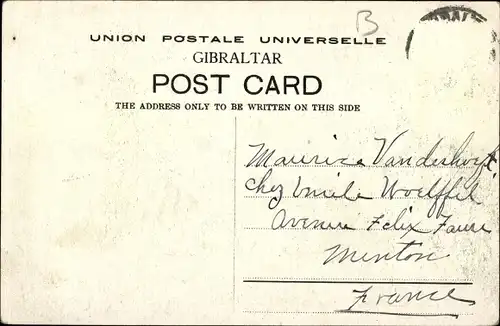 B
UNION POSTALE UNIVERSELLE
GIBRALTAR
POST CARD
THE ADDRESS ONLY TO BE WRITTEN ON THIS SIDE
Maurice
chez Emile Woelffel
Avenue Felix Faure
Menton
France